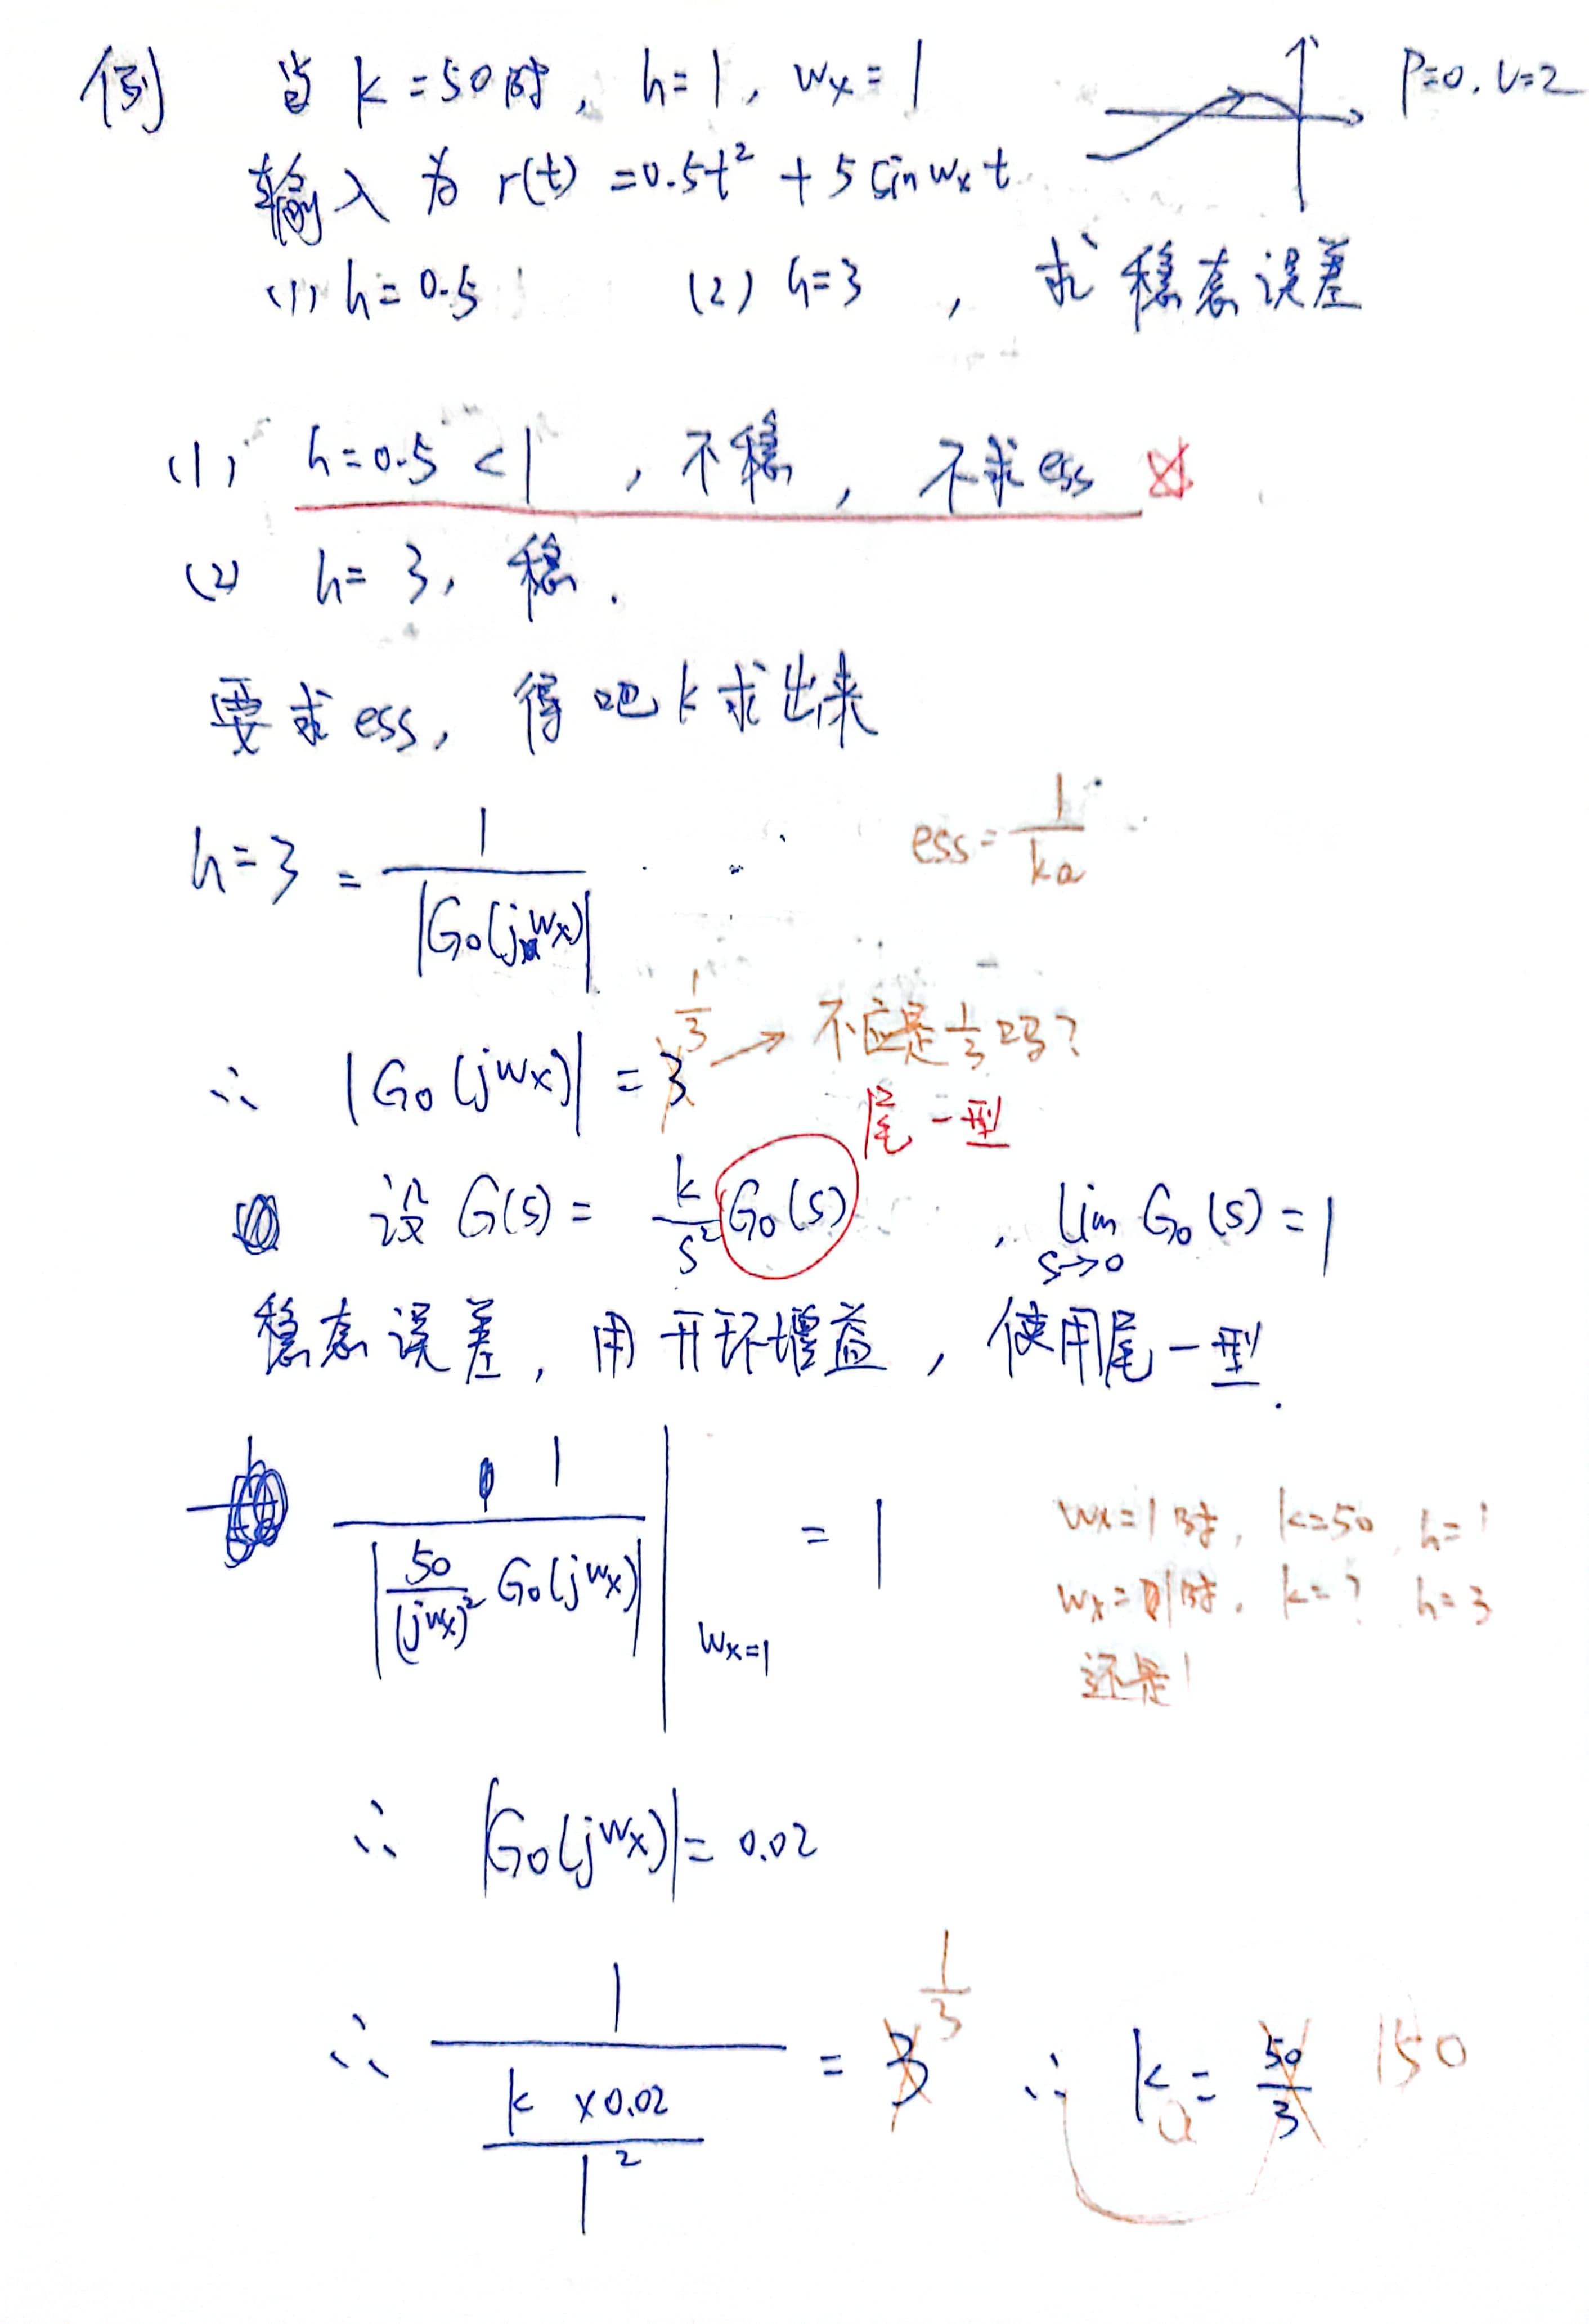 例 当 k=50时, h=1, wx=1 P=0. V=2
输入为 r(t) =0.5t² + 5 sin wx t
(1) h=0.5 (2) h=3 , 求稳态误差
(1) h=0.5<1 , 不稳, 不求ess
(2) h=3, 稳.
要求ess, 得吧k求出来
h=3 = 1/|G0(jwx)| ess= 1/ka
∴ |G0(jwx)| = 3 1/3 → 不应是1/3吗?
尾一型
设 G(s) = k/s² G0(s) , lim s→0 G0(s) = 1
稳态误差, 用开环增益, 使用尾一型.
1/|50/(jwx)² G0(jwx)| | wx=1 = 1
wx=1时, k=50, h=1
wx=1时. k=? h=3
还是1
∴ |G0(jwx)| = 0.02
∴ 1/(k×0.02/1²) = 3 1/3 ∴ ka = 50/3 150